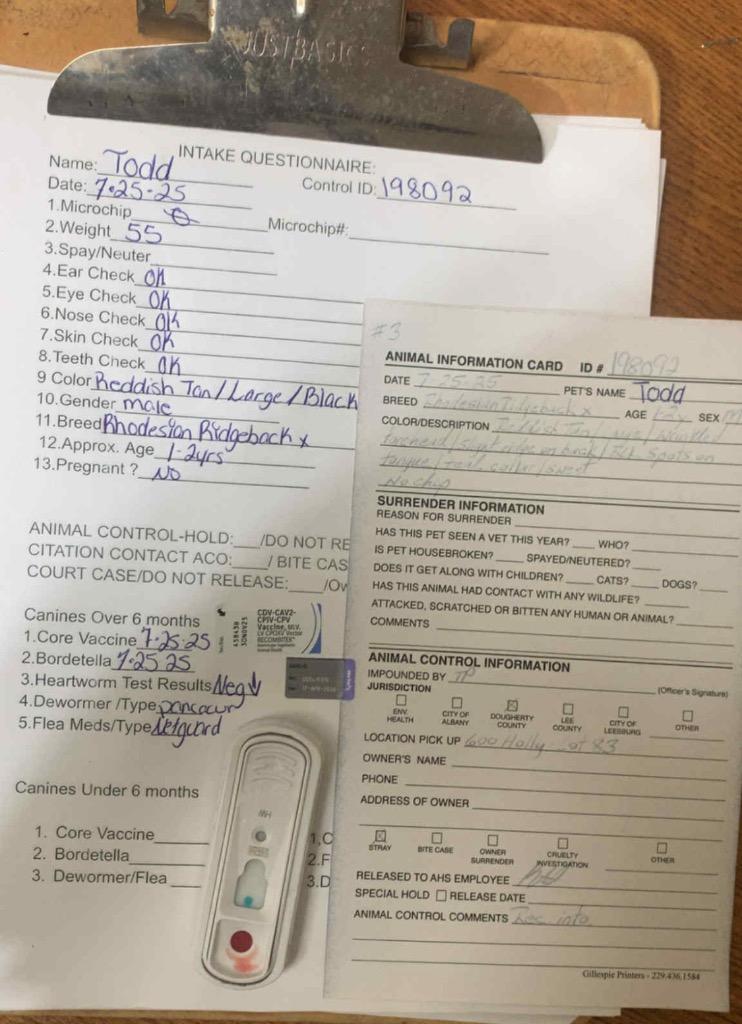 JUSTBASICS
INTAKE QUESTIONNAIRE:
Name: Todd
Control ID: 198092
Date: 7-25-25
1.Microchip Microchip#:
2.Weight 55
3.Spay/Neuter
4.Ear Check OK
5.Eye Check OK
6.Nose Check OK
7.Skin Check OK
8.Teeth Check OK
9 Color Reddish Tan/Large/Black
10.Gender male
11.Breed Rhodesian Ridgeback x
12.Approx. Age 1-2yrs
13.Pregnant ? NO
ANIMAL CONTROL-HOLD: /DO NOT RE
CITATION CONTACT ACO: / BITE CAS
COURT CASE/DO NOT RELEASE: /Ow
Canines Over 6 months
1.Core Vaccine 7-25-25
2.Bordetella 7-25 25
3.Heartworm Test Results Neg
4.Dewormer /Type pancour
5.Flea Meds/Type Nefguard
CDV-CAV2-
CPIV-CPV
Vaccine, MLV,
LV CPOXV Vector
RECOMBITEK
Canines Under 6 months
1. Core Vaccine
2. Bordetella
3. Dewormer/Flea
1,C
2.F
3.D
HW
#3
ANIMAL INFORMATION CARD ID # 198092
DATE 7-25-25 PET'S NAME Todd
BREED Rhodesian Ridgeback x AGE SEX M
COLOR/DESCRIPTION Reddish Tan / / wrinkled
forehead / slight ridge on back / Blk spots on
tongue / teal collar / sweet
No chip
SURRENDER INFORMATION
REASON FOR SURRENDER
HAS THIS PET SEEN A VET THIS YEAR? WHO?
IS PET HOUSEBROKEN? SPAYED/NEUTERED?
DOES IT GET ALONG WITH CHILDREN? CATS? DOGS?
HAS THIS ANIMAL HAD CONTACT WITH ANY WILDLIFE?
ATTACKED, SCRATCHED OR BITTEN ANY HUMAN OR ANIMAL?
COMMENTS
ANIMAL CONTROL INFORMATION
IMPOUNDED BY TP
(Officer's Signature)
JURISDICTION
ENV. HEALTH
CITY OF ALBANY
DOUGHERTY COUNTY
LEE COUNTY
CITY OF LEESBURG
OTHER
LOCATION PICK UP 600 Holly Lot 83
OWNER'S NAME
PHONE
ADDRESS OF OWNER
STRAY
BITE CASE
OWNER SURRENDER
CRUELTY INVESTIGATION
OTHER
RELEASED TO AHS EMPLOYEE
SPECIAL HOLD RELEASE DATE
ANIMAL CONTROL COMMENTS info
Gillespie Printers - 229.436.1584